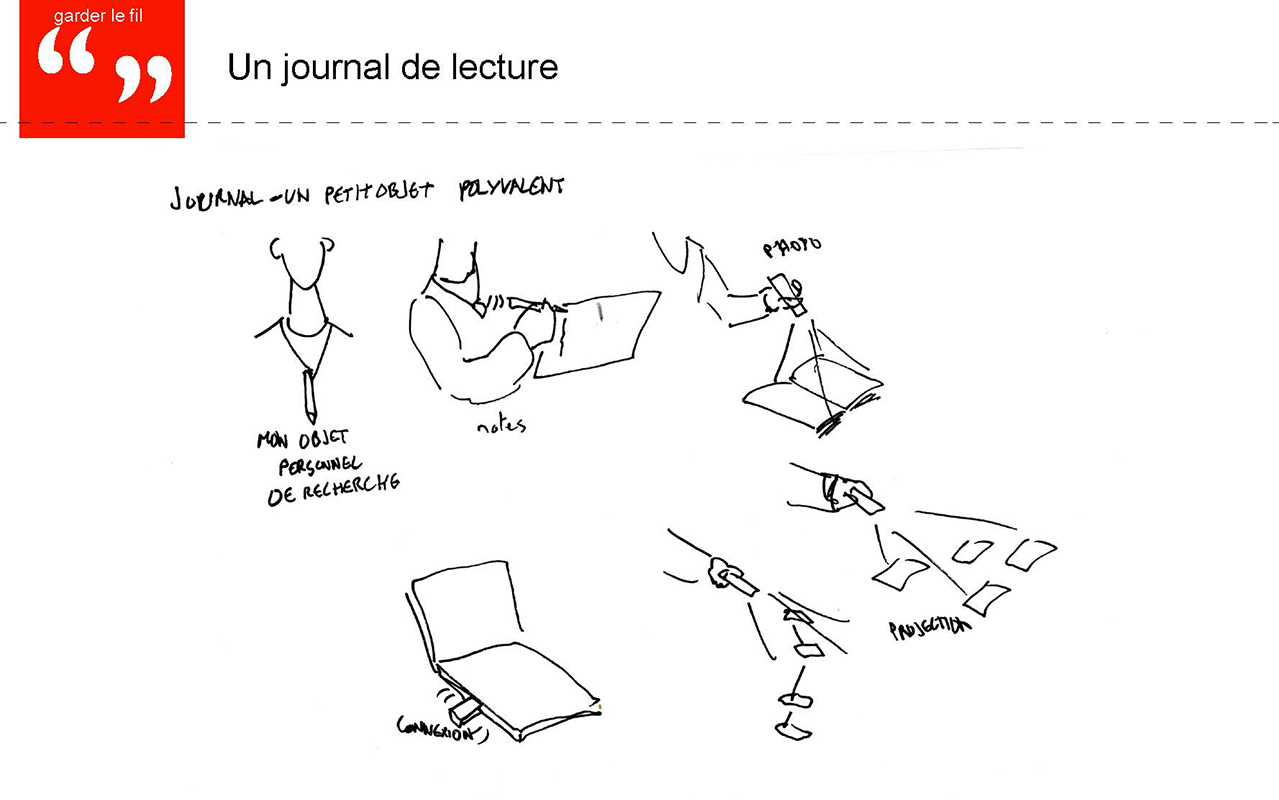 garder le fil
“ ”
Un journal de lecture
JOURNAL - UN PETIT OBJET POLYVALENT
PHOTO
MON OBJET
PERSONNEL
DE RECHERCHE
notes
PROJECTION
CONNEXION